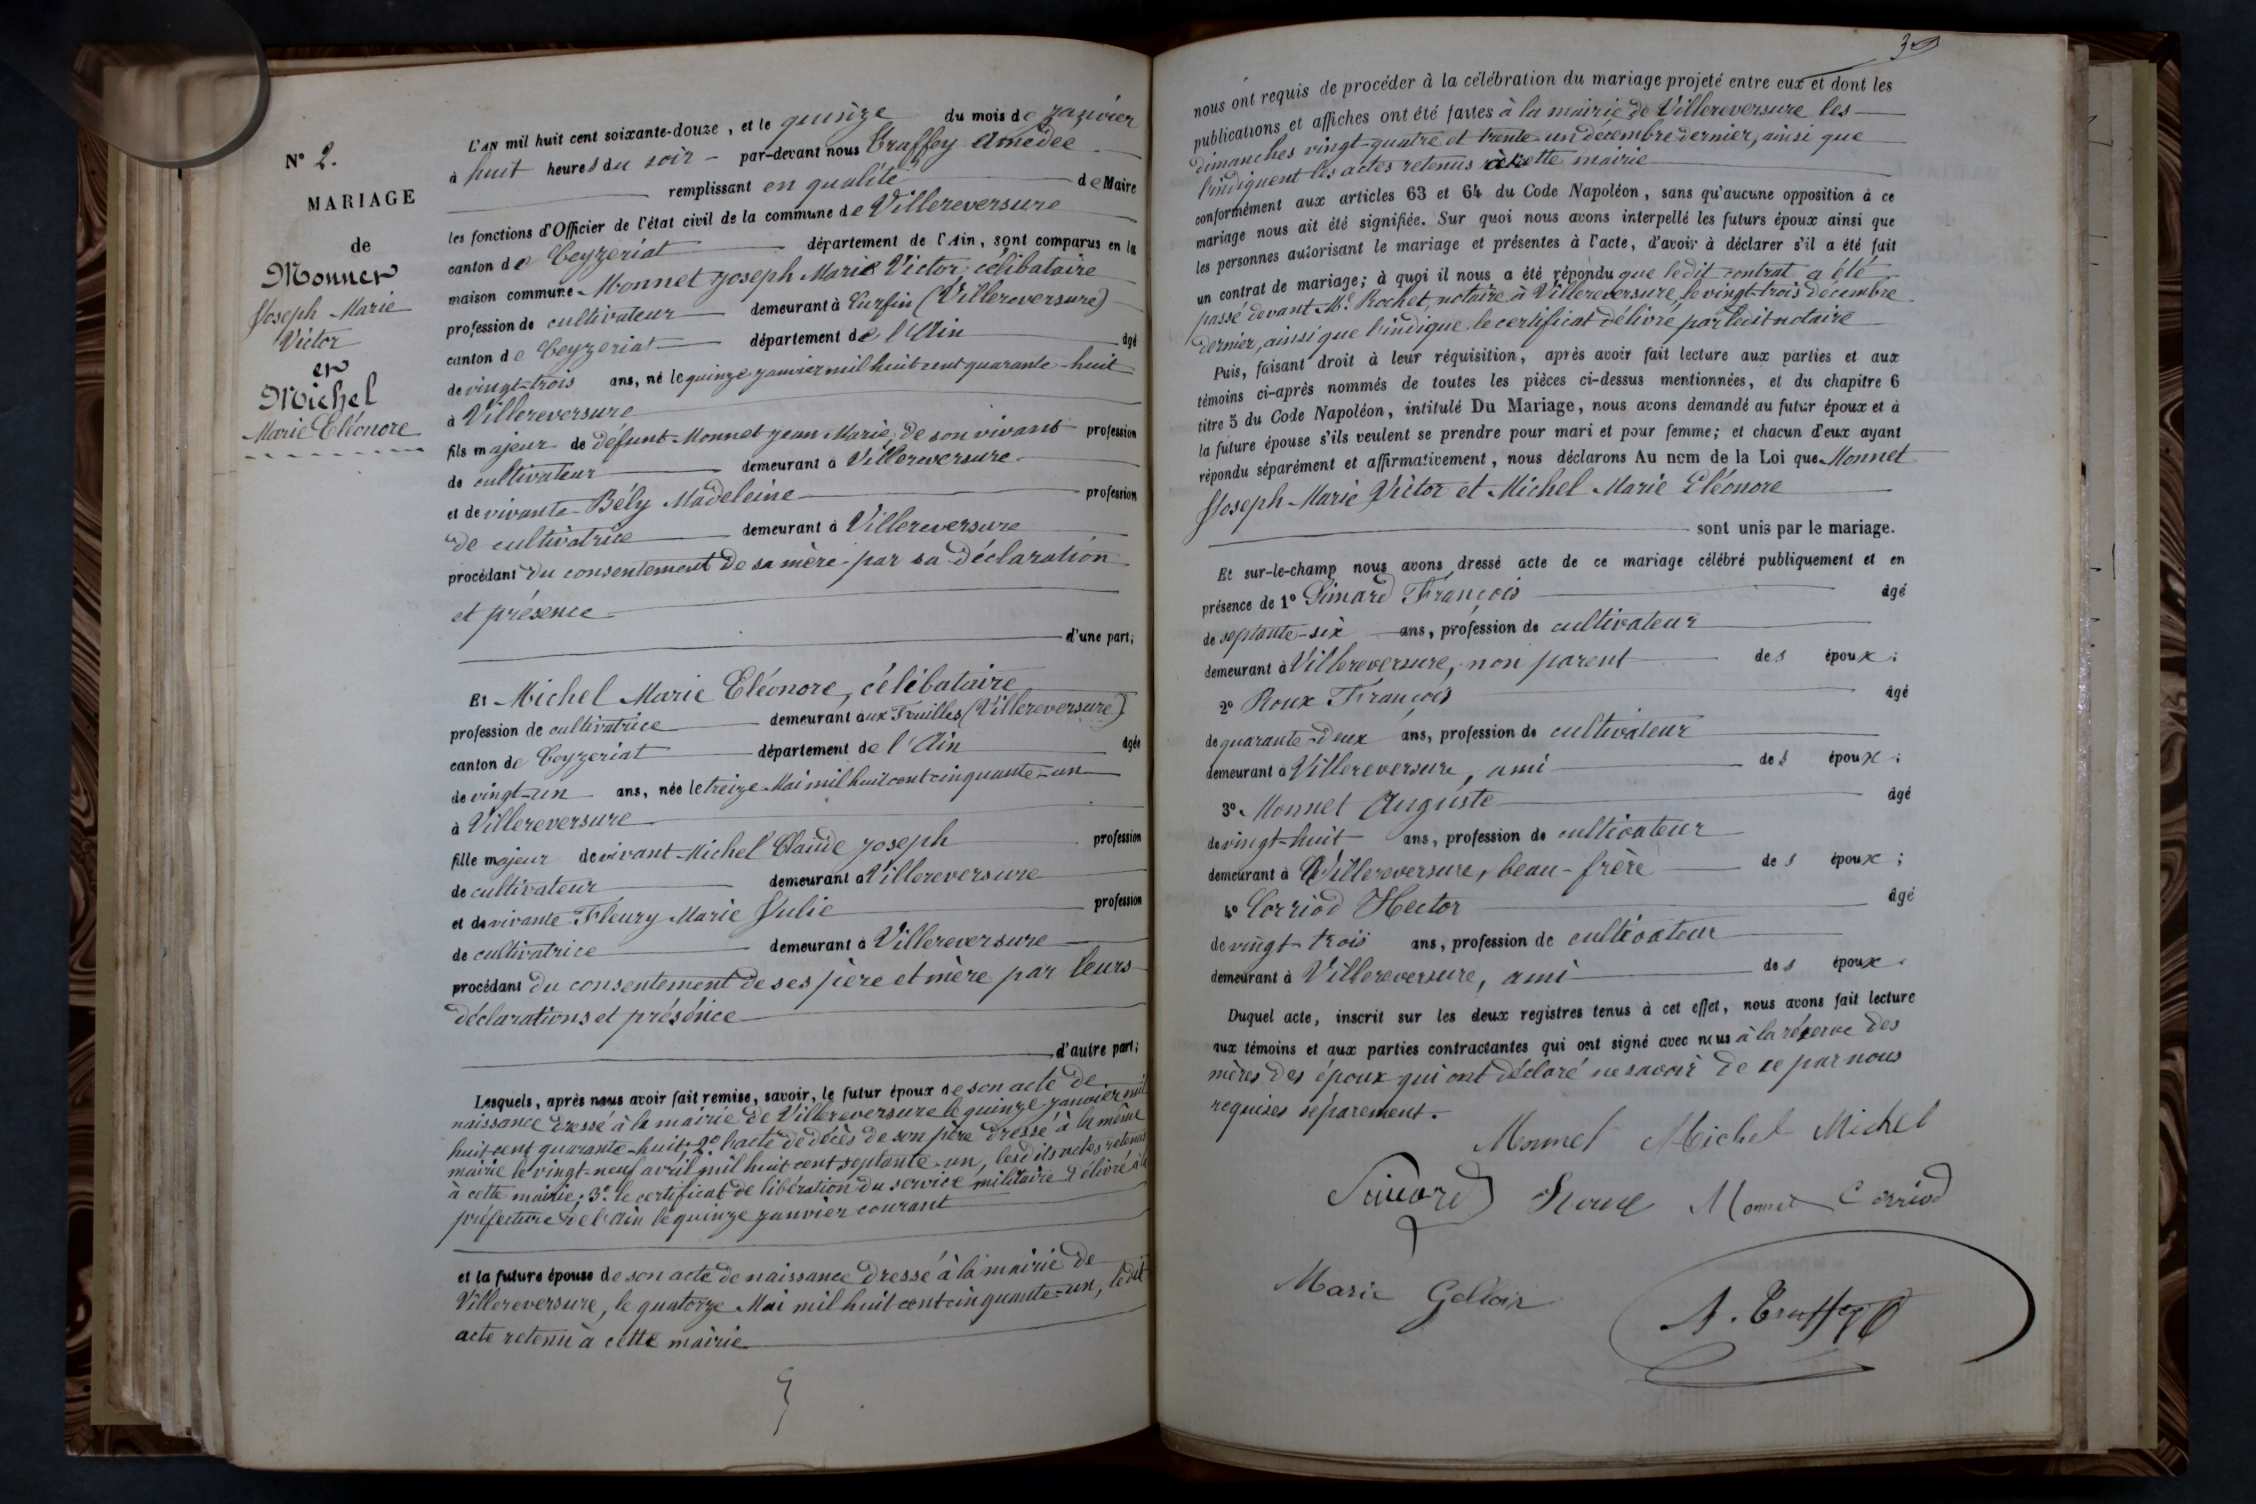 N° 2.
MARIAGE
de
Monnet
Joseph Marie
Victor
et
Michel
Marie Eléonore
L'AN mil huit cent soixante-douze, et le quinze du mois de janvier
à huit heures du soir par-devant nous Truffey Amédée
remplissant en qualité de Maire
les fonctions d'Officier de l'état civil de la commune de Villereversure
canton de Ceyzeriat département de l'Ain, sont comparus en la
maison commune Monnet Joseph Marie Victor, célibataire
profession de cultivateur demeurant à Curfin (Villereversure)
canton de Ceyzeriat département de l'Ain âgé
de vingt-trois ans, né le quinze janvier mil huit cent quarante-huit
à Villereversure
fils majeur de défunt Monnet Jean Marie, de son vivant profession
de cultivateur demeurant à Villereversure
et de vivante Bély Madeleine profession
de cultivatrice demeurant à Villereversure
procédant du consentement de sa mère par sa déclaration
et présence
d'une part;
Et Michel Marie Eléonore, célibataire
profession de cultivatrice demeurant aux Feuilles (Villereversure)
canton de Ceyzeriat département de l'Ain âgée
de vingt-un ans, née le treize Mai mil huit cent cinquante-un
à Villereversure
fille majeur de vivant Michel Claude Joseph profession
de cultivateur demeurant à Villereversure
et de vivante Fleury Marie Julie profession
de cultivatrice demeurant à Villereversure
procédant du consentement de ses père et mère par leurs
déclarations et présénce
d'autre part;
Lesquels, après nous avoir fait remise, savoir, le futur époux de son acte de
naissance dressé à la mairie de Villereversure le quinze janvier mil
huit cent quarante-huit; 2° l'acte de décès de son père dressé à la même
mairie le vingt-neuf avril mil huit cent septante-un, lesdits actes retenus
à cette mairie; 3° le certificat de libération du service militaire délivré à la
préfecture de l'Ain le quinze janvier courant
et la future épouse de son acte de naissance dressé à la mairie de
Villereversure, le quatorze Mai mil huit cent cinquante-un, ledit
acte retenu à cette mairie
39
nous ont requis de procéder à la célébration du mariage projeté entre eux et dont les
publications et affiches ont été faites à la mairie de Villereversure les
dimanches vingt-quatre et trente-un décembre dernier, ainsi que
l'indiquent les actes retenus à cette mairie
conformément aux articles 63 et 64 du Code Napoléon, sans qu'aucune opposition à ce
mariage nous ait été signifiée. Sur quoi nous avons interpellé les futurs époux ainsi que
les personnes autorisant le mariage et présentes à l'acte, d'avoir à déclarer s'il a été fait
un contrat de mariage; à quoi il nous a été répondu que ledit contrat a été
passé devant Me Rochet, notaire à Villereversure, le vingt-trois décembre
dernier, ainsi que l'indique le certificat délivré par ledit notaire
Puis, faisant droit à leur réquisition, après avoir fait lecture aux parties et aux
témoins ci-après nommés de toutes les pièces ci-dessus mentionnées, et du chapitre 6
titre 5 du Code Napoléon, intitulé Du Mariage, nous avons demandé au futur époux et à
la future épouse s'ils veulent se prendre pour mari et pour femme; et chacun d'eux ayant
répondu séparément et affirmativement, nous déclarons Au nom de la Loi que Monnet
Joseph Marie Victor et Michel Marie Eléonore
sont unis par le mariage.
Et sur-le-champ nous avons dressé acte de ce mariage célébré publiquement et en
présence de 1° Simard François âgé
de septante-six ans, profession de cultivateur
demeurant à Villereversure, non parent des époux;
2° Roux François âgé
de quarante-deux ans, profession de cultivateur
demeurant à Villereversure, ami des époux;
3° Monnet Auguste âgé
de vingt-huit ans, profession de cultivateur
demeurant à Villereversure, beau-frère des époux;
4° Corriod Hector âgé
de vingt-trois ans, profession de cultivateur
demeurant à Villereversure, ami des époux.
Duquel acte, inscrit sur les deux registres tenus à cet effet, nous avons fait lecture
aux témoins et aux parties contractantes qui ont signé avec nous à la réserve des
mères des époux qui ont déclaré ne savoir de ce par nous
requises séparement.
Monnet Michel Michel
Simard Roux Monnet Corriod
Marie
A. Truffey